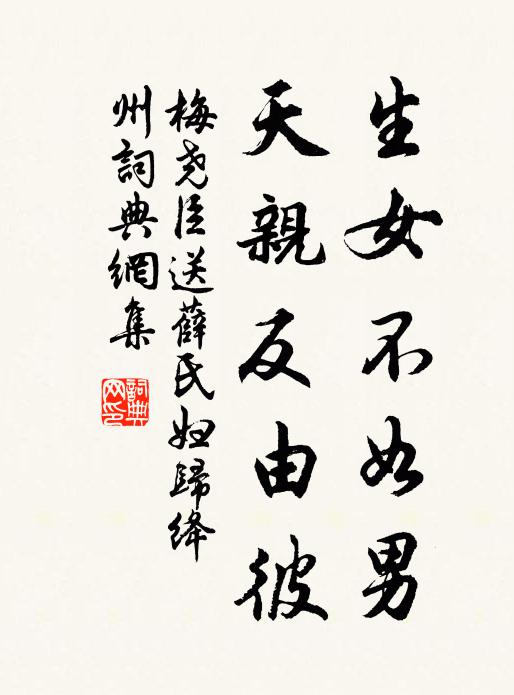 生女不如男
天親反由彼
梅尧臣送薛氏妇歸绛
州詞典網集
詞典
网印